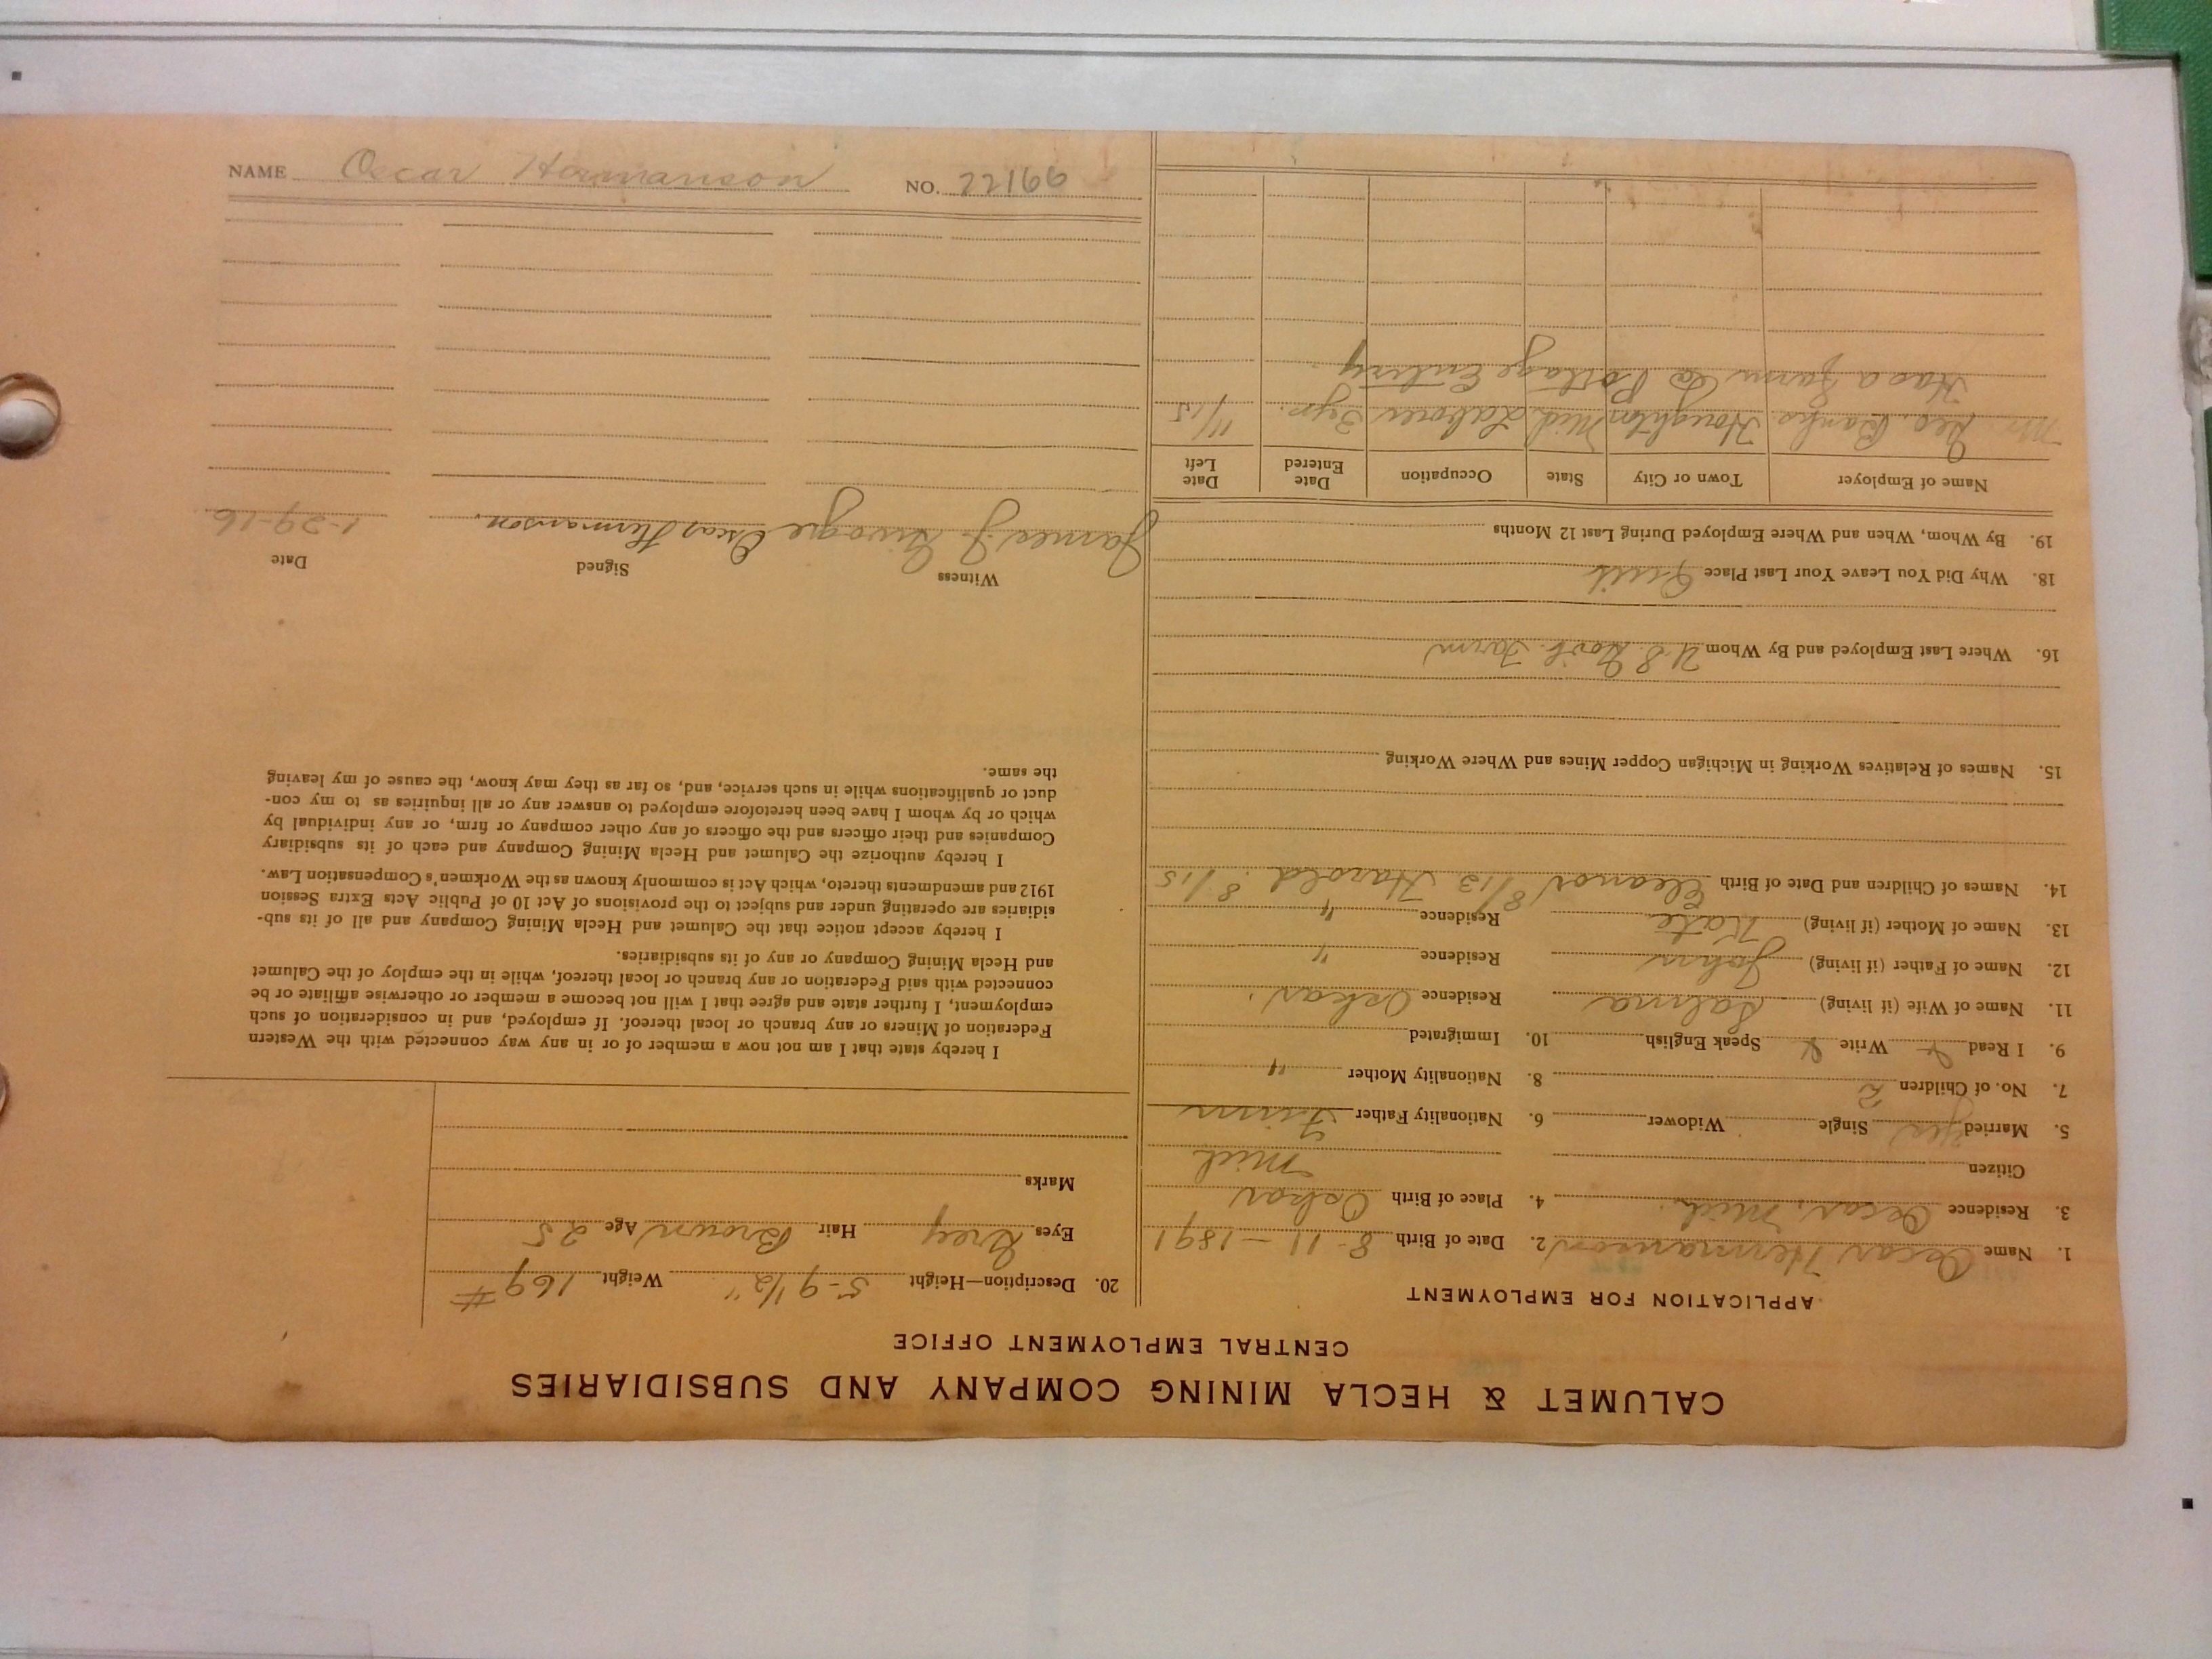 CALUMET & HECLA MINING COMPANY AND SUBSIDIARIES
CENTRAL EMPLOYMENT OFFICE
APPLICATION FOR EMPLOYMENT
1. Name Oscar Hermanson 2. Date of Birth 8-11-1891
3. Residence Oscar, Mich. 4. Place of Birth Oskar
Citizen Mich
5. Married yes Single Widower 6. Nationality Father Finn
7. No. of Children 2 8. Nationality Mother "
9. I Read Write Speak English 10. Immigrated
11. Name of Wife (if living) Salma Residence Oskar.
12. Name of Father (if living) John Residence "
13. Name of Mother (if living) Kate Residence "
14. Names of Children and Date of Birth Eleanor 8/13 Harold. 8/15
15. Names of Relatives Working in Michigan Copper Mines and Where Working
16. Where Last Employed and By Whom U.S. Farm
18. Why Did You Leave Your Last Place Quit
19. By Whom, When and Where Employed During Last 12 Months
Name of Employer Town or City State Occupation Date Entered Date Left
Mr Geo. Banks. Houghton Mich. Laborer 3 yr. 11/15
Has a farm @ Portage Entry
20. Description—Height 5-9 1/2" Weight 169 #
Eyes Grey Hair Brown Age 25
Marks
I hereby state that I am not now a member of or in any way connected with the Western
Federation of Miners or any branch or local thereof. If employed, and in consideration of such
employment, I further state and agree that I will not become a member or otherwise affiliate or be
connected with said Federation or any branch or local thereof, while in the employ of the Calumet
and Hecla Mining Company or any of its subsidiaries.
I hereby accept notice that the Calumet and Hecla Mining Company and all of its sub-
sidiaries are operating under and subject to the provisions of Act 10 of Public Acts Extra Session
1912 and amendments thereto, which Act is commonly known as the Workmen's Compensation Law.
I hereby authorize the Calumet and Hecla Mining Company and each of its subsidiary
Companies and their officers and the officers of any other company or firm, or any individual by
which or by whom I have been heretofore employed to answer any or all inquiries as to my con-
duct or qualifications while in such service, and, so far as they may know, the cause of my leaving
the same.
Witness Signed Date
James J. Oscar Hermanson. 1-29-16
NAME Oscar Hermanson NO. 22166